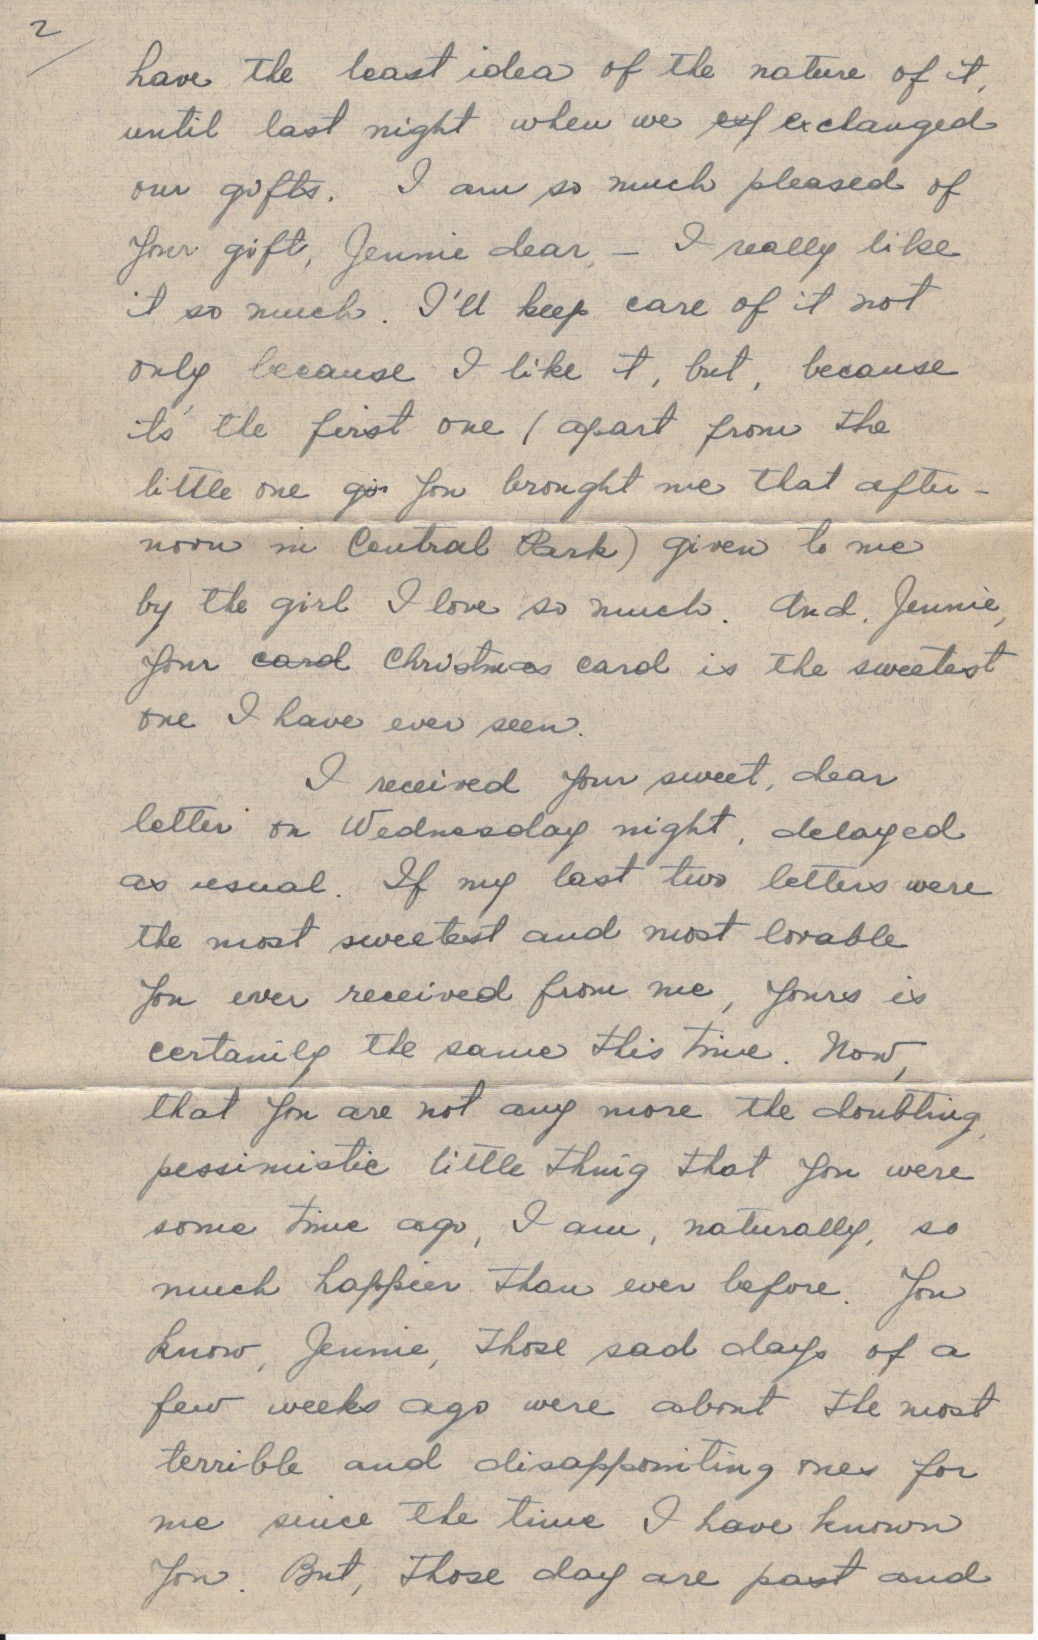 2
have the least idea of the nature of it,
until last night when we exf exchanged
our gifts. I am so much pleased of
your gift, Jennie dear, - I really like
it so much. I'll keep care of it not
only because I like it, but, because
its' the first one (apart from the
little one gi you brought me that after-
noon in Central Park) given to me
by the girl I love so much. And, Jennie,
your card Christmas card is the sweetest
one I have ever seen.
I received your sweet, dear
letter on Wednesday night, delayed
as usual. If my last two letters were
the most sweetest and most lovable
you ever received from me, yours is
certainly the same this time. Now,
that you are not any more the doubting,
pessimistic little thing that you were
some time ago, I am, naturally, so
much happier than ever before. You
know, Jennie, those sad days of a
few weeks ago were about the most
terrible and disappointing ones for
me since the time I have known
you. But, those day are past and